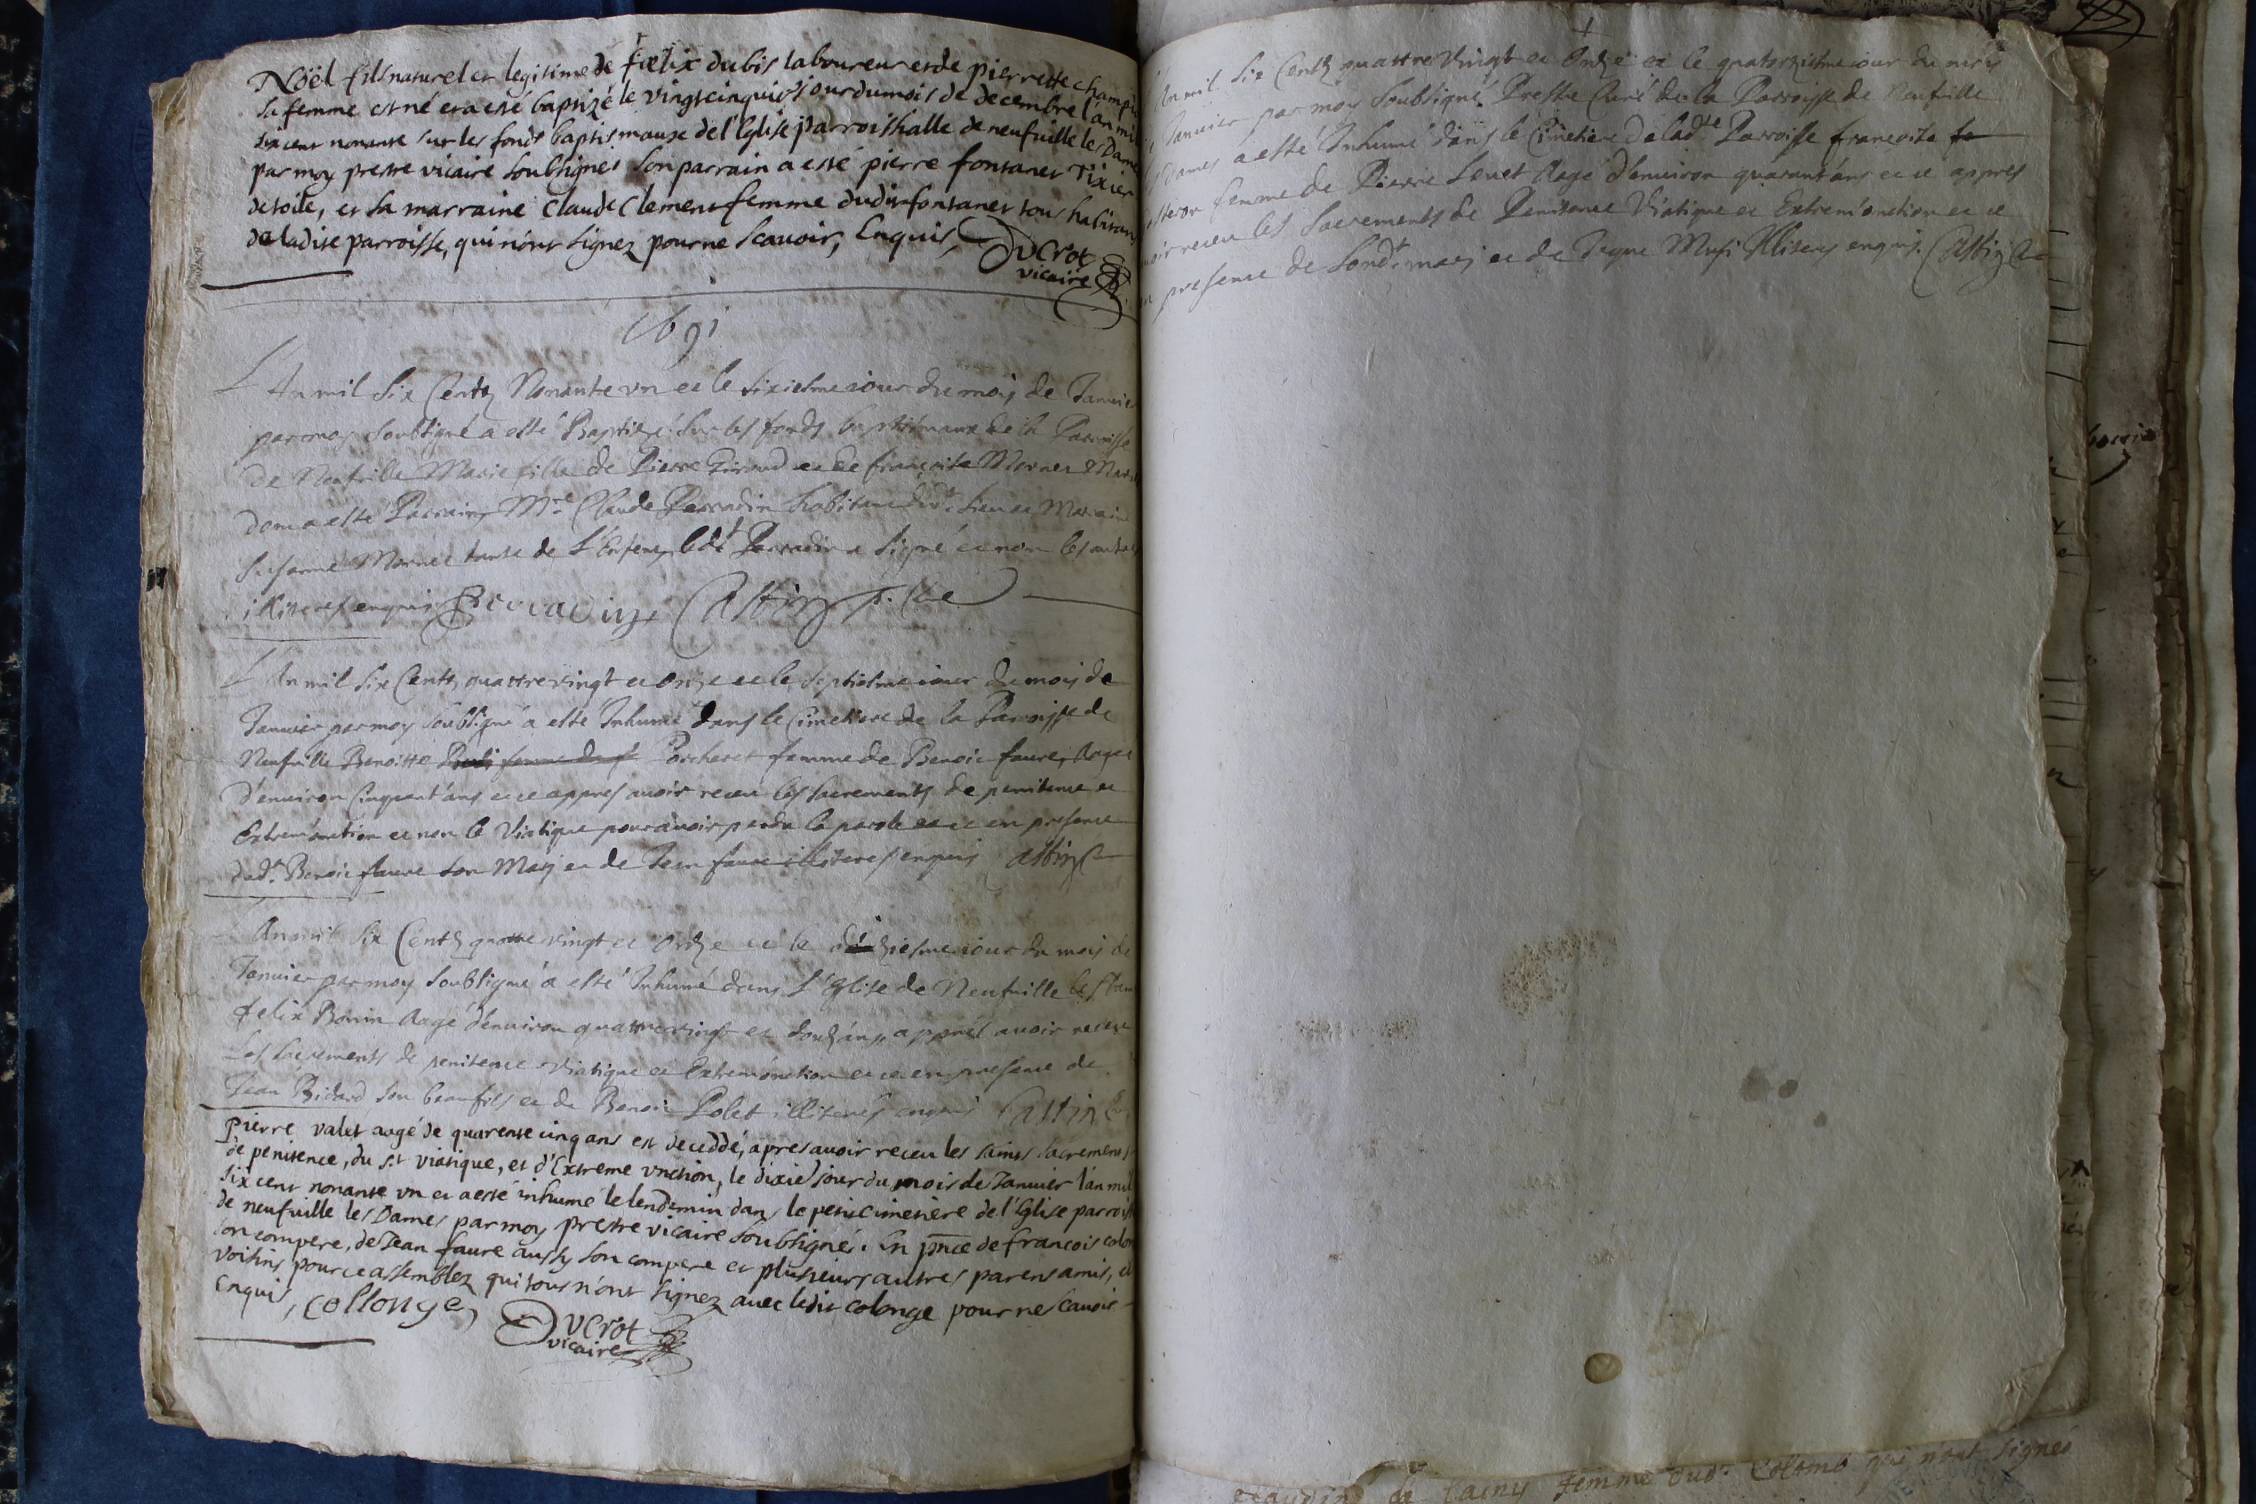 Noël fils naturel et legitime de foelix dubis laboureur et de pierrette champi
sa femme est né et a esté baptizé le vingtcinquies jour du mois de decembre l'an mil
six cent nonante sur les fonds baptismaux de l'Eglise parroishialle de neufuille les Dames
par moy prestre vicaire soubsignes son parrain a esté pierre fontanet Tixier
de toile, et sa marraine claude Clement femme dudit fontanet tous habitans
de ladite parroisse, qui n'ont signez pour ne scauoir, Enquis,
Ducrot
vicaire
1691
L'An mil six Cents Nonante vn et le sixiesme iour du mois de Januie
par moy soubsigné a esté Baptizé sur les fonds baptismaux de la Parroisse
de Neufuille Marie fille de Pierre Giroud et de françoise Mornet Mari
dont a esté Parrain Mre Claude Parradin habitant dud. lieu et Marraine
Susanne Mornet tante de l'Enfant, led.t Parradin a signé et non les autres
illiteres enquis Parradin, Castin p. Cure
L'An mil six Cents quattrevingt et Onze et le septiesme iour du mois de
Januier par moy soubsigné a esté Inhumé dans le Cimetiere de la Parroisse de
Neufuille Benoitte femme de Porcheret femme de Benoit faure, Aagee
d'enuiron Cinquant'ans et ce appres auoir receu les sacrements de penitence et
Extrem'onction et non le Viatique pour auoir perdu la parole et ce en presence
dud. Benoit faure son Mary et de Jean faure illiteres enquis Castin
An mil six Cents quattre vingt et Onze et le iour du mois de
Januier par moy soubsigné a esté Inhumé dans l'Eglise de Neufuille les Dam
Felix Bonin Aagé d'enuiron quattrevingt et douz'ans appres auoir receu
Les sacrements de penitence Viatique et Extrem'onction et ce en presence de
Jean Bidard son beaufils et de Benoit Polet illiterés enquis Castin
pierre valet aagé de quarente cinq ans est deceddé, apres auoir receu les saints sacrements
de penitence, du st viatique, et d'Extreme vnction, le dixies jour du mois de Januier l'an mil
six cent nonante vn et a esté inhumé le lendemin dans le petit cimetière de l'Eglise parrois
de neufuille les Dames par moy prestre vicaire soubsignés. En pnce de francois colon
son compere, de Jean faure aussy son compere et plusieurs autres parens amis, et
voisins pour ce assemblez qui tous n'ont signez auec ledit colonge pour ne scauoir
Enquis, collonge,
Ducrot
vicaire
An mil six Cents quattre Vingt et Onze et le quatorziesme iour du mois
Januier par moy soubsigné Prestre Curé de la Parroisse de Neufuille
Dames a esté Inhumé dans le Cimetiere de lad.te Parroisse francoise
femme de Pierre Aagé d'enuiron quarant'ans et ce appres
auoir receu les sacrements de Penitence Viatique et Extrem'onction et ce
en presence de sond.t mary et de illiteres enquis. Castin
femme dud. Colomb qui n'ont signés